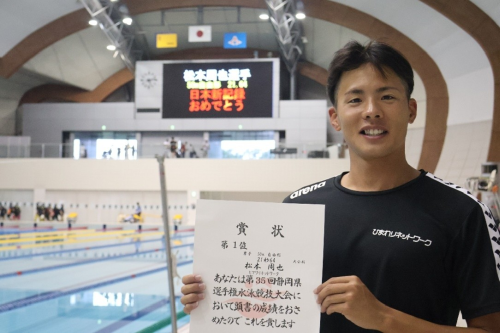 日本新記録
おめでとう
arena
ひまわりネットワーク
賞状
第1位
松本周也
あなたは第35回静岡県
選手権水泳競技大会に
おいて頭書の成績をおさ
めたので これを賞します